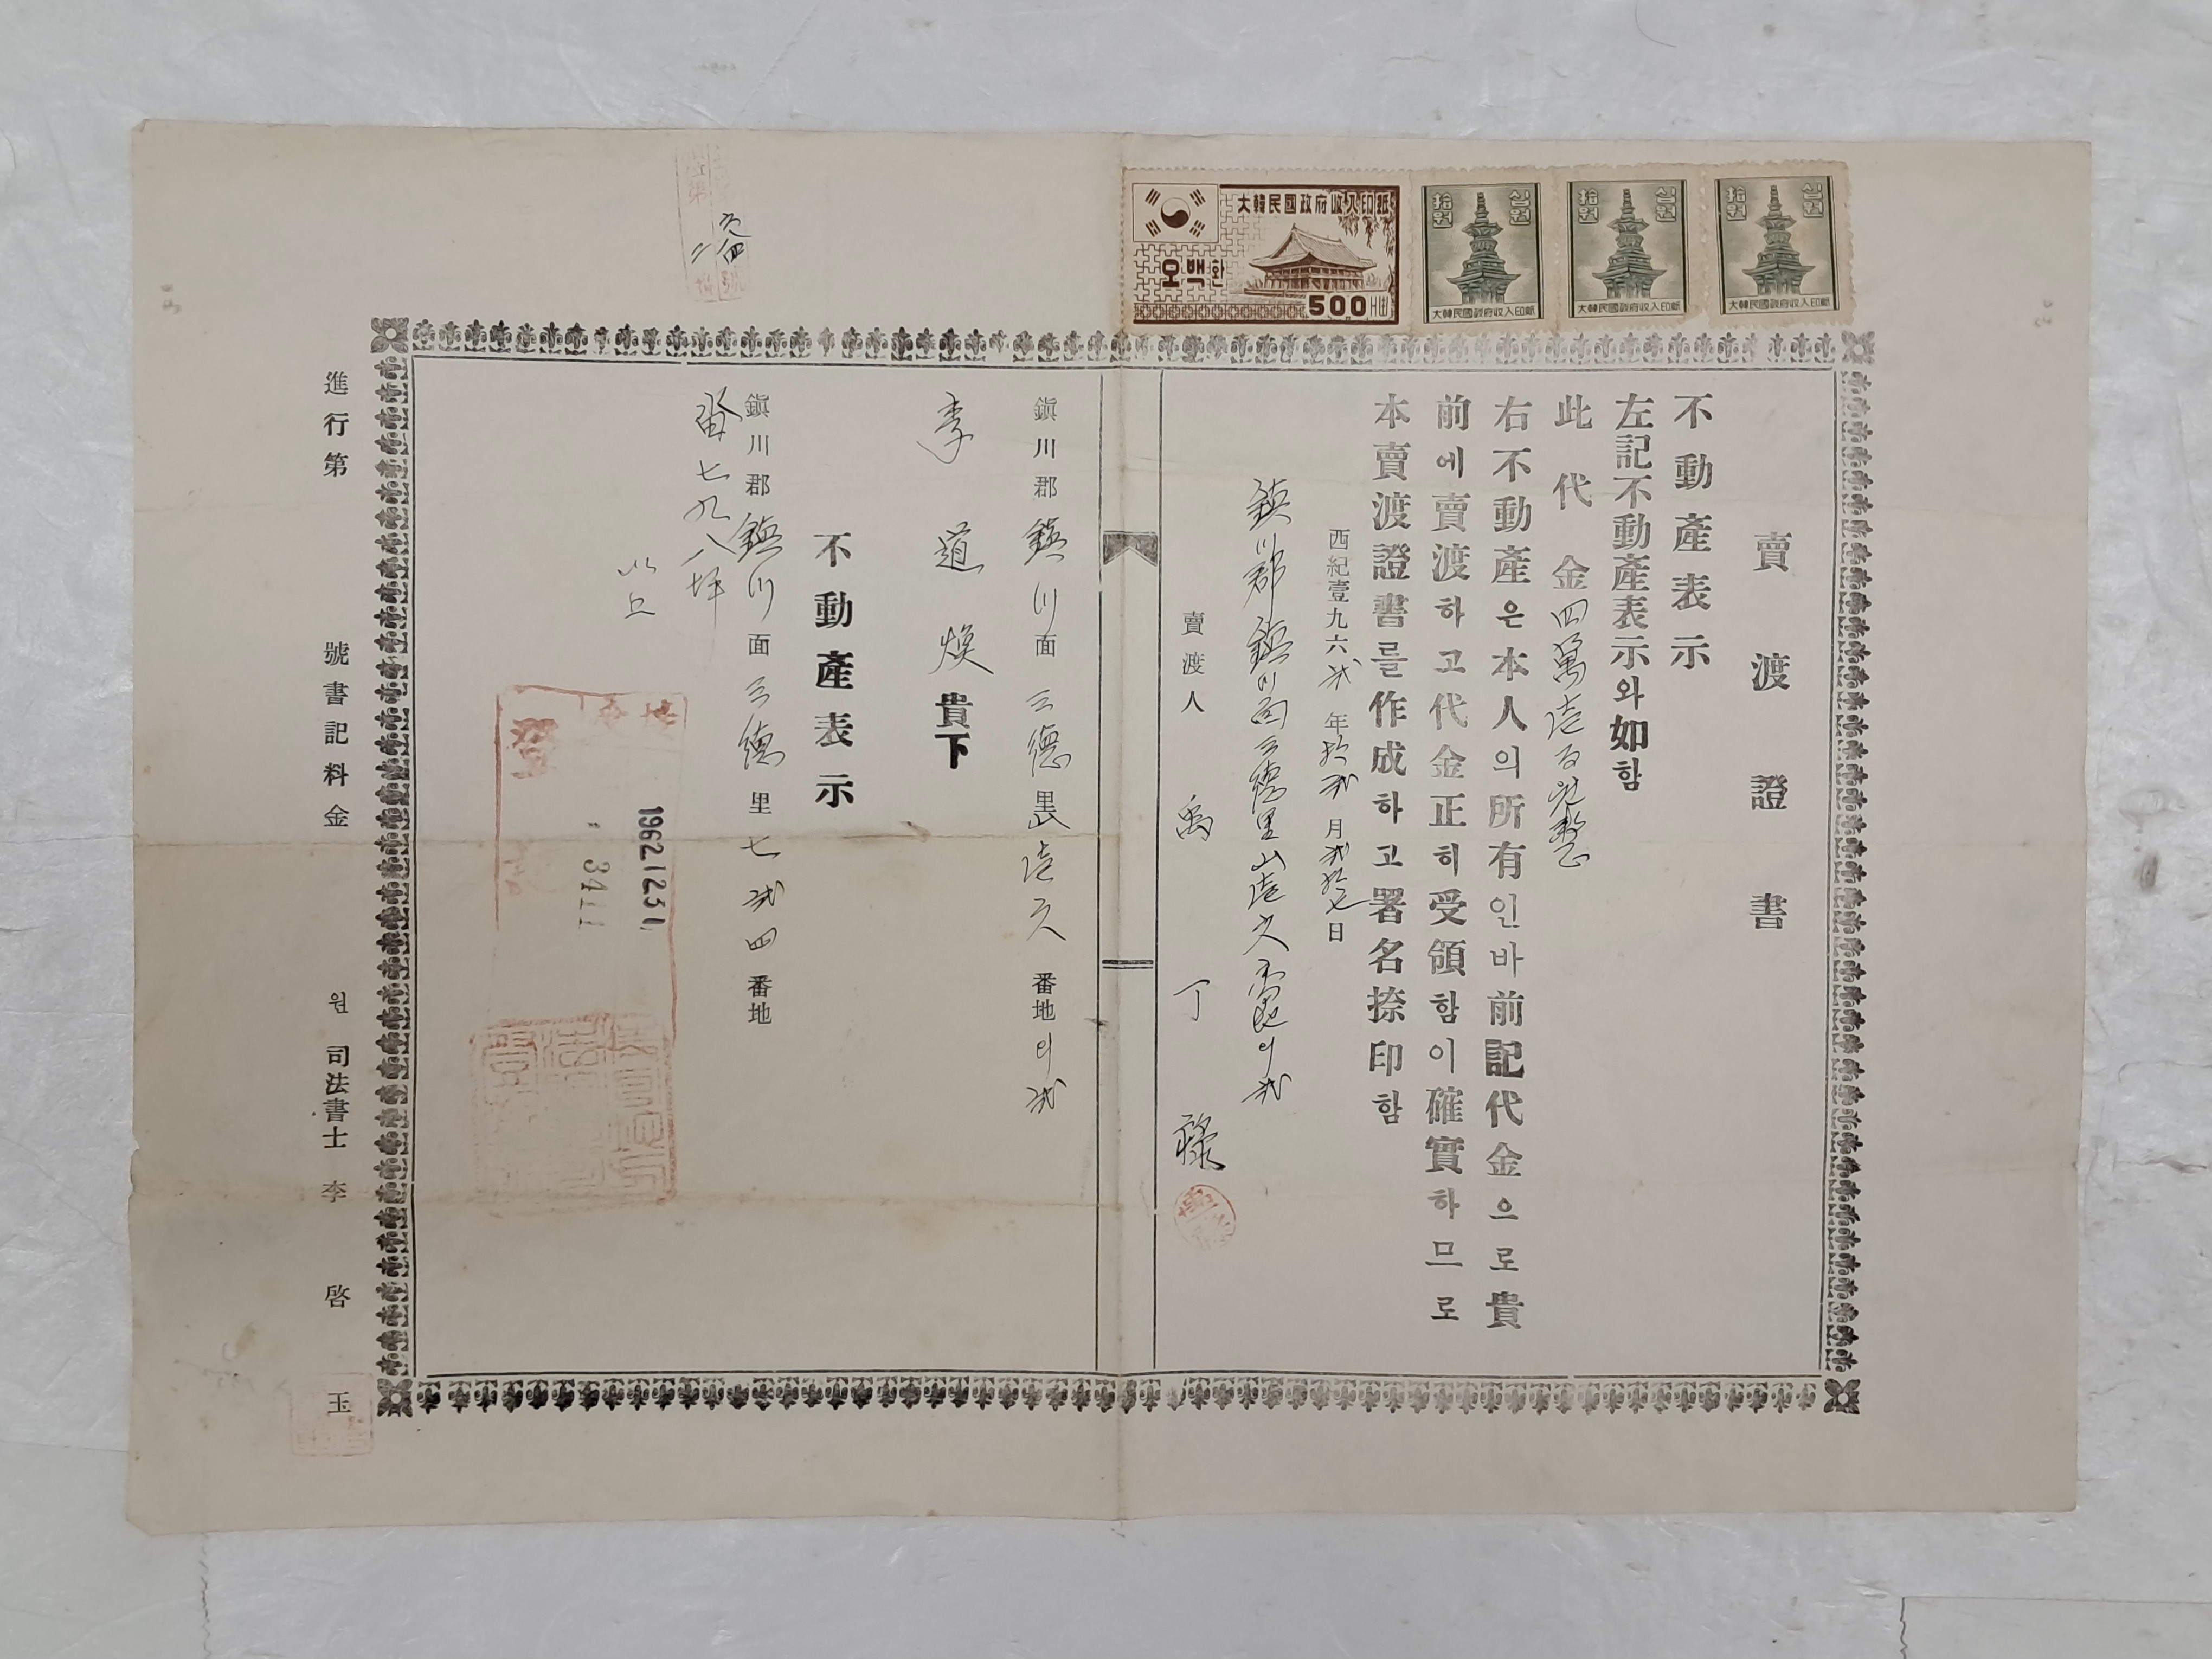 大韓民國政府收入印紙
오백환
500 HW
拾원 십원
大韓民國政府收入印紙
拾원 십원
大韓民國政府收入印紙
拾원 십원
大韓民國政府收入印紙
賣渡證書
不動產表示
左記不動產表示와如함
此代金四萬壹百원整
右不動產은本人의所有인바前記代金으로貴
前에賣渡하고代金正히受領함이確實하므로
本賣渡證書를作成하고署名捺印함
西紀壹九六貳年拾貳月貳拾七日
鎭川郡鎭川面三德里山壹
賣渡人 禹丁祿
鎭川郡鎭川面三德里壹六番地의貳
李道煥貴下
不動產表示
鎭川郡鎭川面三德里七貳四番地
畓七九八坪
以上
19621231
3411
登
進行第 號書記料金 원 司法書士 李啓玉